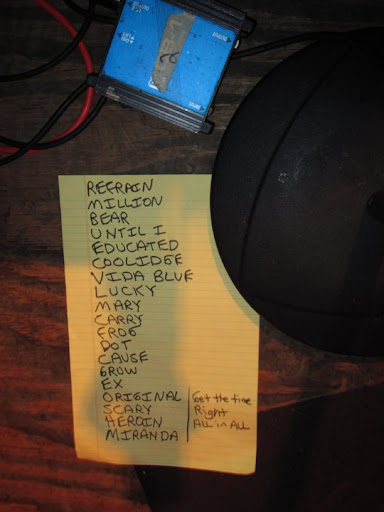 REFRAIN
MILLION
BEAR
UNTIL I
EDUCATED
COOLIDGE
VIDA BLUE
LUCKY
MARY
CARRY
FROG
DOT
CAUSE
GROW
EX
ORIGINAL
SCARY
HEROIN
MIRANDA
Get the time
Right
ALL in ALL